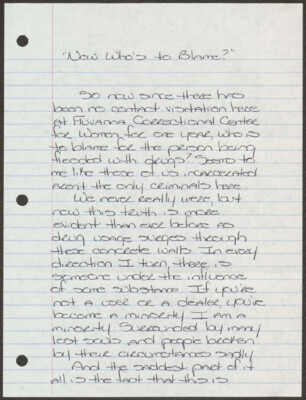 "Now Who's to Blame?"
So now since there has
been no contact visitation here
at Fluvanna Correctional Center
for Women for one year, who is
to blame for the prison being
flooded with drugs? Seems to
me like those of us incarcerated
arent the only criminals here.
We never really were, but
now this truth is more
evident than ever before as
drug usage surges through
these concrete walls. In every
direction I turn, there is
someone under the influence
of some substance. If you're
not a user or a dealer, you've
become a minority. I am a
minority. Surrounded by many
lost souls and people broken
by their circumstances sadly.
And the saddest part of it
all is the fact that this is